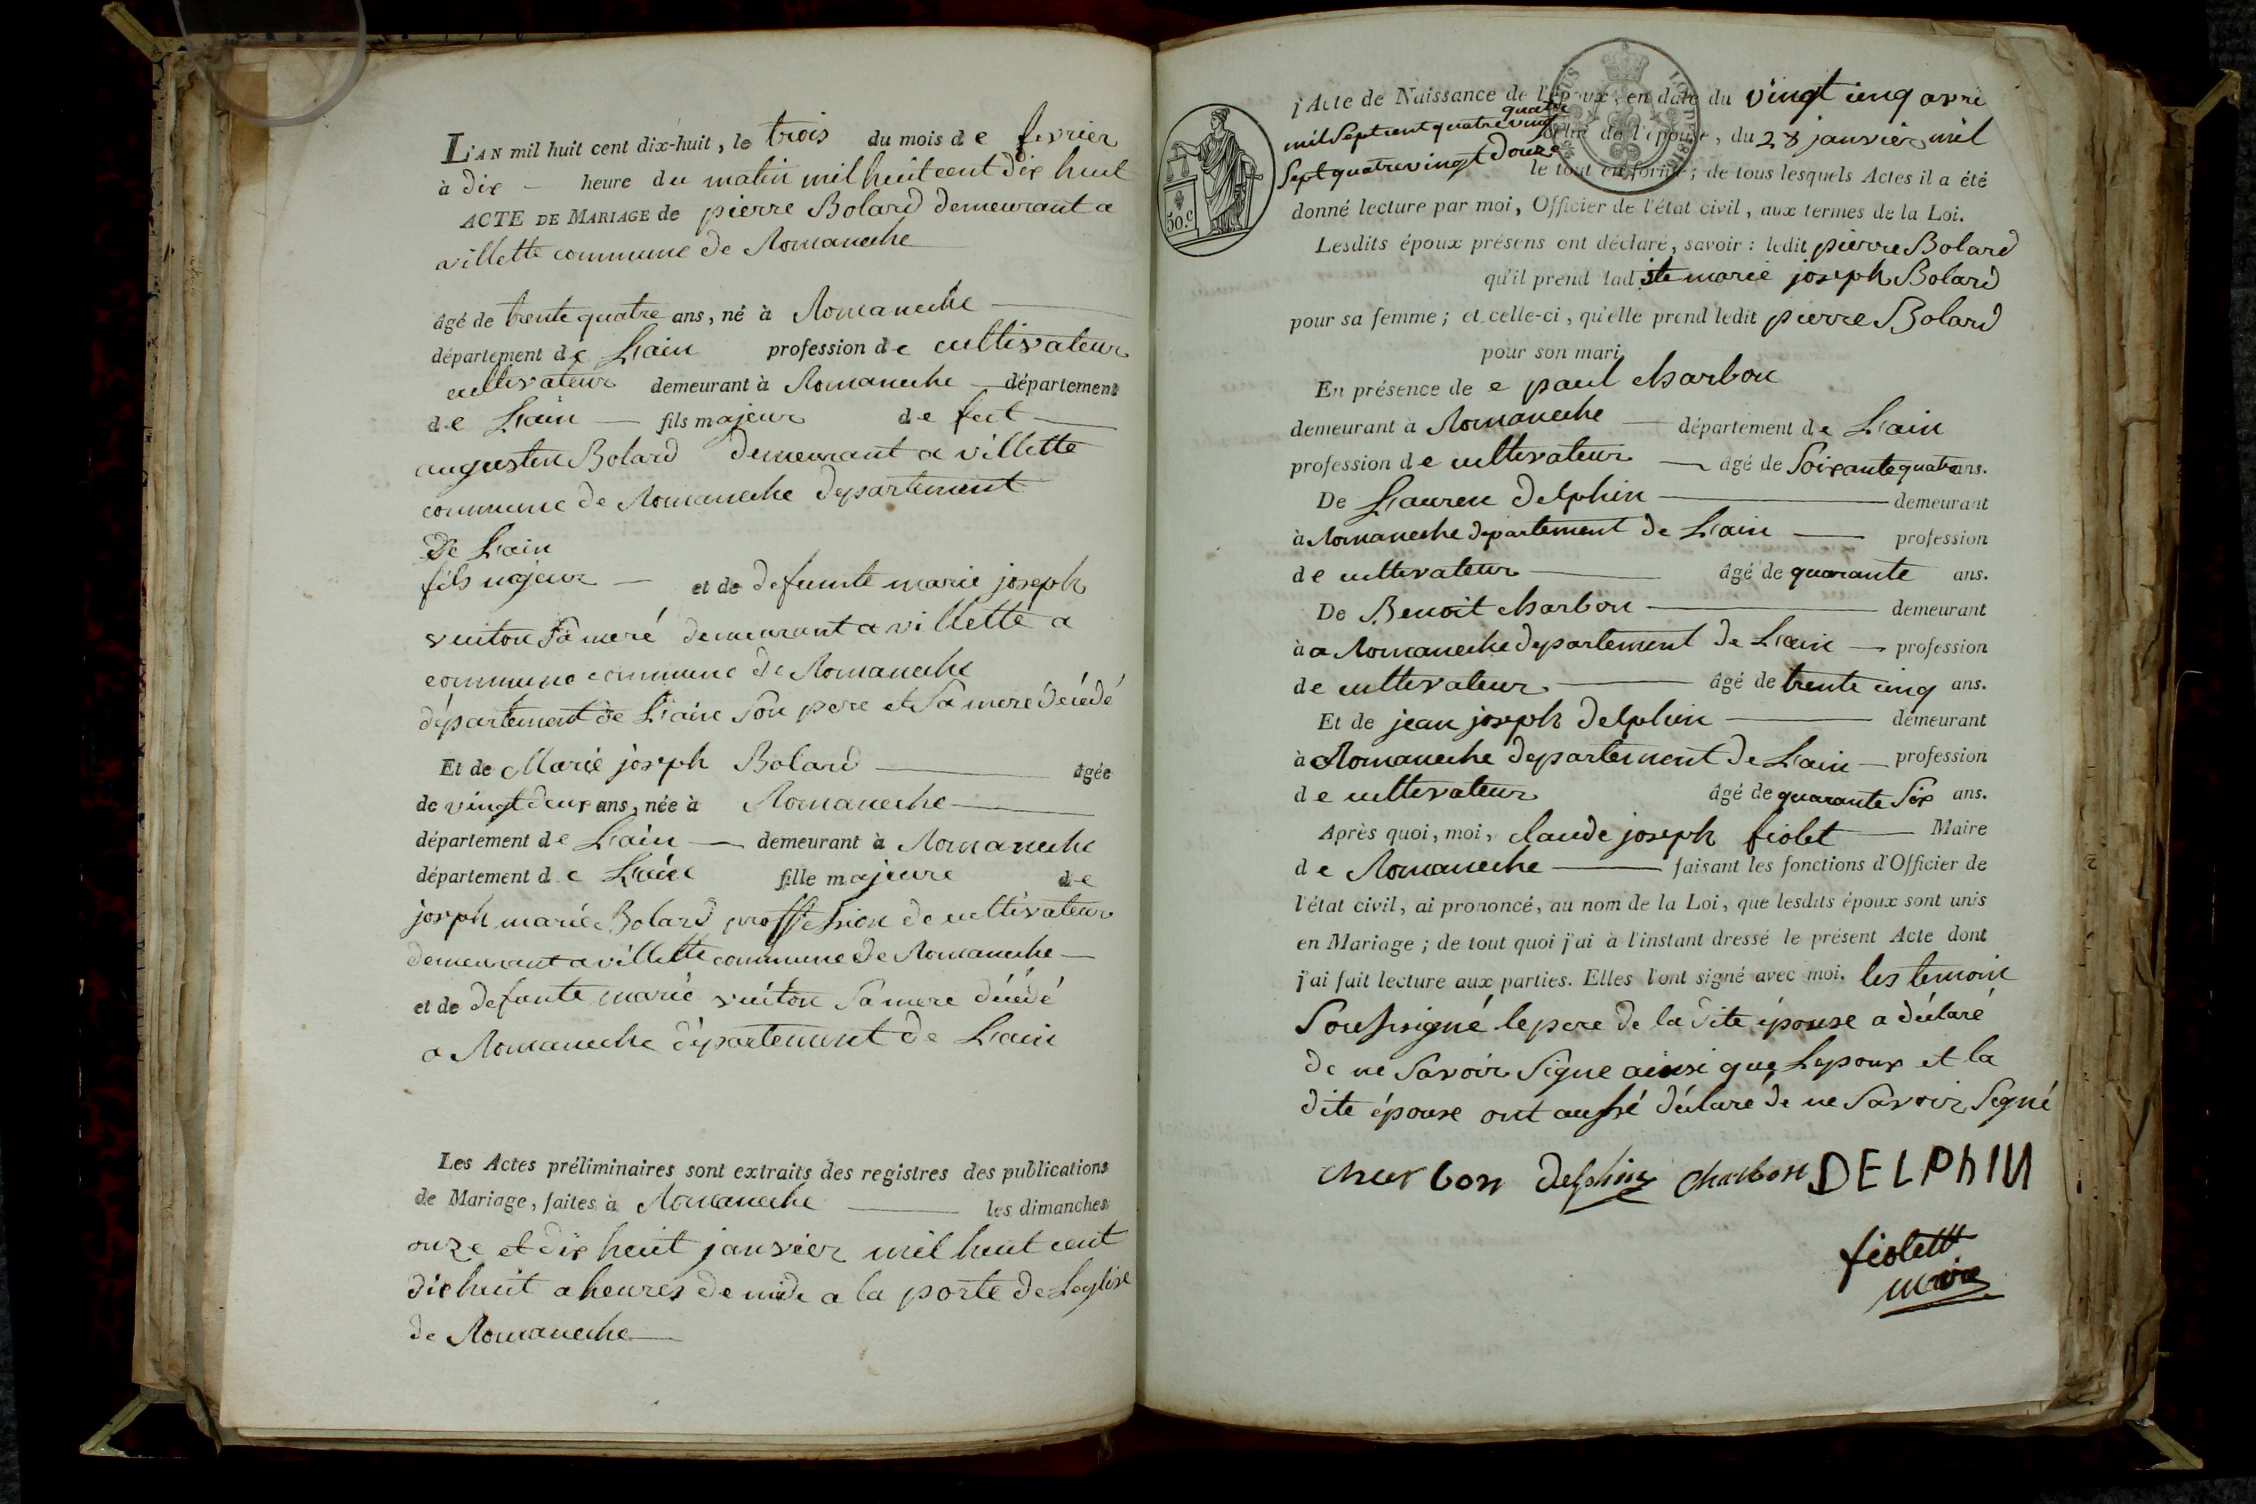 L'AN mil huit cent dix-huit, le trois du mois de fevrier
à dix - heure du matin mil huit cent dix huit
ACTE DE MARIAGE de pierre Bolard demeurant a
villette commune de Romaneche
âgé de trente quatre ans, né à Romaneche
département de L'ain profession de cultivateur
cultivateur demeurant à Romaneche département
de L'ain fils majeur de feut
augustin Bolard demeurant a villette
commune de Romaneche departement
De L'ain
fils majeur et de defunte marie joseph
vuiton Sa meré demeurant a villette a
commune commune de Romaneche
département de L'ain Son pere et Sa mere décédé
Et de Marie joseph Bolard âgée
de vingt deux ans, née à Romaneche
département de L'ain demeurant à Romaneche
département de L'ain fille majeure de
joseph marie Bolard proffession de cultivateur
demeurant a villette commune de Romaneche
et de defunte marie vuiton Sa mere décédé
a Romaneche département de L'ain
Les Actes préliminaires sont extraits des registres des publications
de Mariage, faites à Romaneche les dimanches
onze et dix heuit janvier mil huit cent
dix huit a heures de midi a la porte de Leglise
de Romaneche
50.c
l'Acte de Naissance de l'époux, en date du vingt cinq avri
quatre
mil Sept cent quatre vingt celui de l'épouse, du 28 janvier mil
Sept quatre vingt Douze le tout en forme; de tous lesquels Actes il a été
donné lecture par moi, Officier de l'état civil, aux termes de la Loi.
Lesdits époux présens ont déclaré, savoir: ledit pierre Bolard
qu'il prend lad ite marie joseph Bolard
pour sa femme; et celle-ci, qu'elle prend ledit pierre Bolard
pour son mari
En présence de e paul charbon
demeurant à Romaneche département de L'ain
profession de cultivateur âgé de Soixante quatre ans.
De Lauren Delphin demeurant
à Romaneche departement de L'ain profession
de cultivateur âgé de quarante ans.
De Benoit charbon demeurant
à a Romaneche departement de L'ain profession
de cultivateur âgé de trente cinq ans.
Et de jean joseph Delphin demeurant
à Romaneche departement de L'ain profession
de cultivateur âgé de quarante Six ans.
Après quoi, moi, claude joseph fiolet Maire
de Romaneche faisant les fonctions d'Officier de
l'état civil, ai prononcé, au nom de la Loi, que lesdits époux sont unis
en Mariage; de tout quoi j'ai à l'instant dressé le présent Acte dont
j'ai fait lecture aux parties. Elles l'ont signé avec moi. les temoin
Soussigné le pere de la dite épouse a déclaré
de ne Savoir Signe ainsi que Lepoux et la
dite épouse ont aussé déclaré de ne Savoir Signé
charbon delphin charbon DELPhIN
fiolett
maire